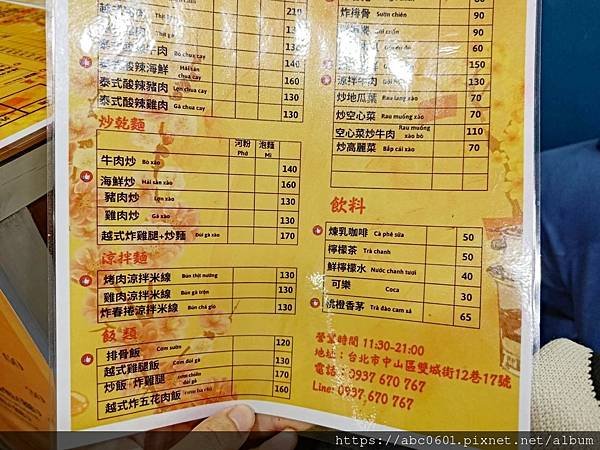 210
130
130
泰式酸辣海鮮 Hải sản chua cay 140
泰式酸辣豬肉 Lợn chua cay 160
泰式酸辣雞肉 Gà chua cay 130
炒乾麵
河粉 Phở 泡麵 Mì
牛肉炒 Bò xào 140
海鮮炒 Hải sản xào 160
豬肉炒 Lợn xào 130
雞肉炒 Gà xào 130
越式炸雞腿+炒麵 Đùi gà xào 170
涼拌麵
烤肉涼拌米線 Bún thịt nướng 130
雞肉涼拌米線 Bún gà trộn 130
炸春捲涼拌米線 Bún chả giò 130
飯類
排骨飯 Cơm sườn 120
越式雞腿飯 Cơm đùi gà 130
炒飯 炸雞腿 Cơm chiên đùi gà 170
越式炸五花肉飯 Cơm ba chỉ 160
炸排骨 Sườn chiên 90
90
60
150
涼拌牛肉 130
炒地瓜葉 Rau lang xào 70
炒空心菜 Rau muống xào 70
空心菜炒牛肉 Rau muống xào bò 110
炒高麗菜 Bắp cải xào 70
飲料
煉乳咖啡 Cà phê sữa 50
檸檬茶 Trà chanh 50
鮮檸檬水 Nước chanh tươi 40
可樂 Coca 30
桃橙香茅 Trà đào cam sả 65
營業時間 11:30-21:00
地址：台北市中山區雙城街12巷17號
電話：0937 670 767
Line: 0937 670 767
https://abc0601.pixnet.net/album